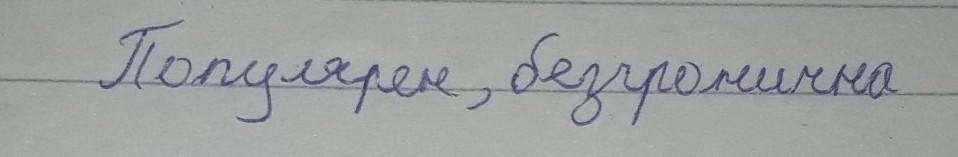 Популярен, безгранична